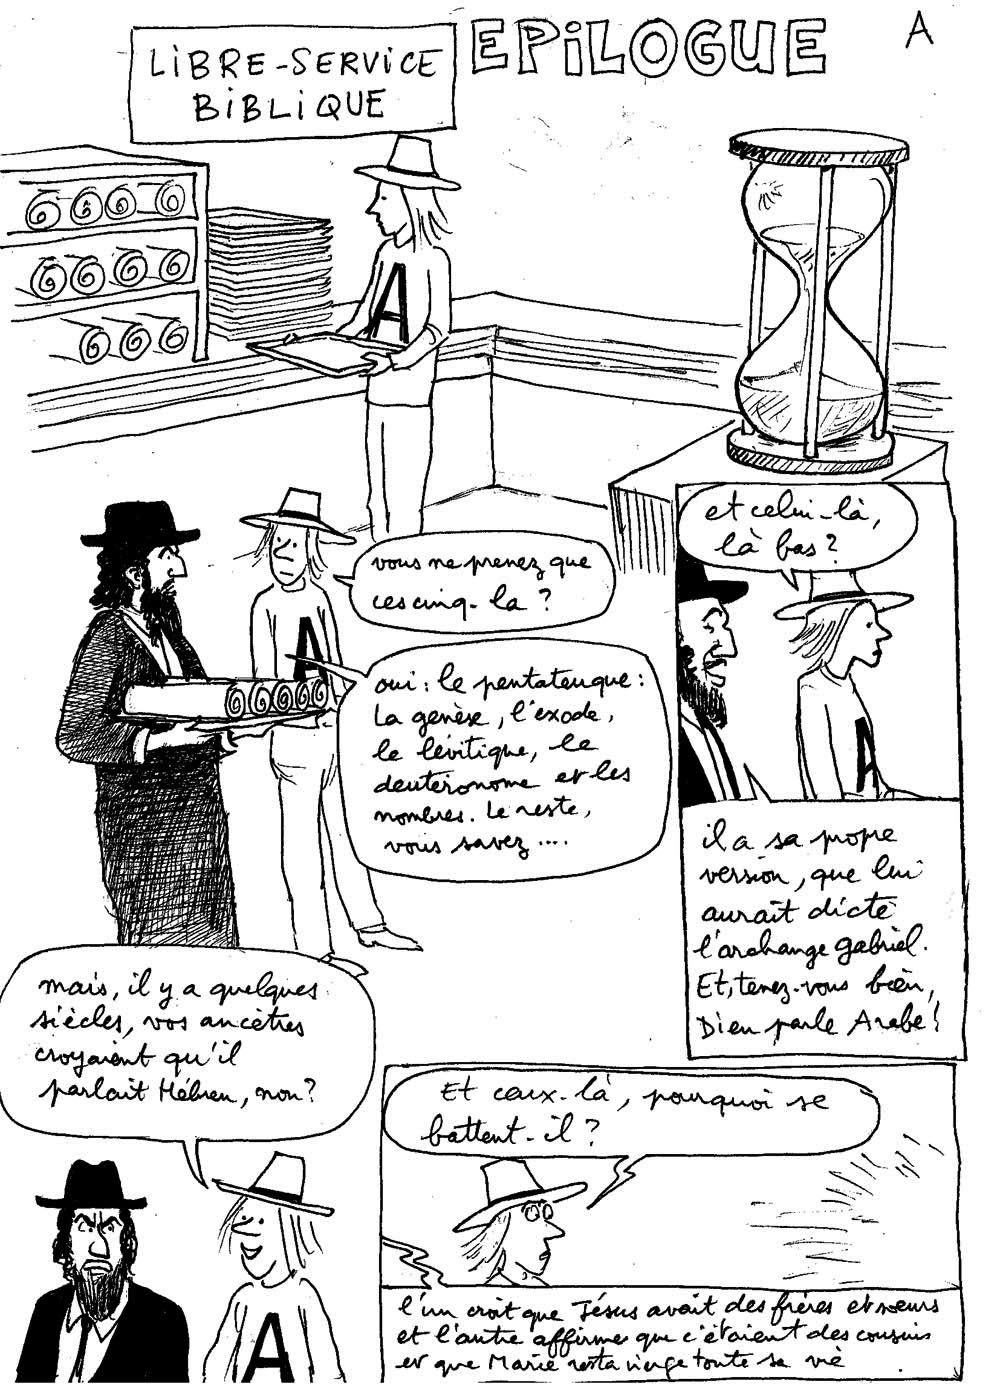 LIBRE-SERVICE
BIBLIQUE
EPILOGUE
A
A
vous ne prenez que
ces cinq-la ?
A
oui : le pentateuque :
La genèse, l'exode,
le lévitique, le
deutéronome et les
nombres. Le reste,
vous savez ....
et celui-là,
là bas ?
A
il a sa propre
version, que lui
aurait dicté
l'archange gabriel.
Et, tenez-vous bien,
Dieu parle Arabe !
mais, il y a quelques
siècles, vos ancêtres
croyaient qu'il
parlait Hébreu, non ?
A
Et ceux-là, pourquoi se
battent-il ?
l'un croit que Jésus avait des frères et soeurs
et l'autre affirme que c'étaient des cousins
et que Marie resta vierge toute sa vie